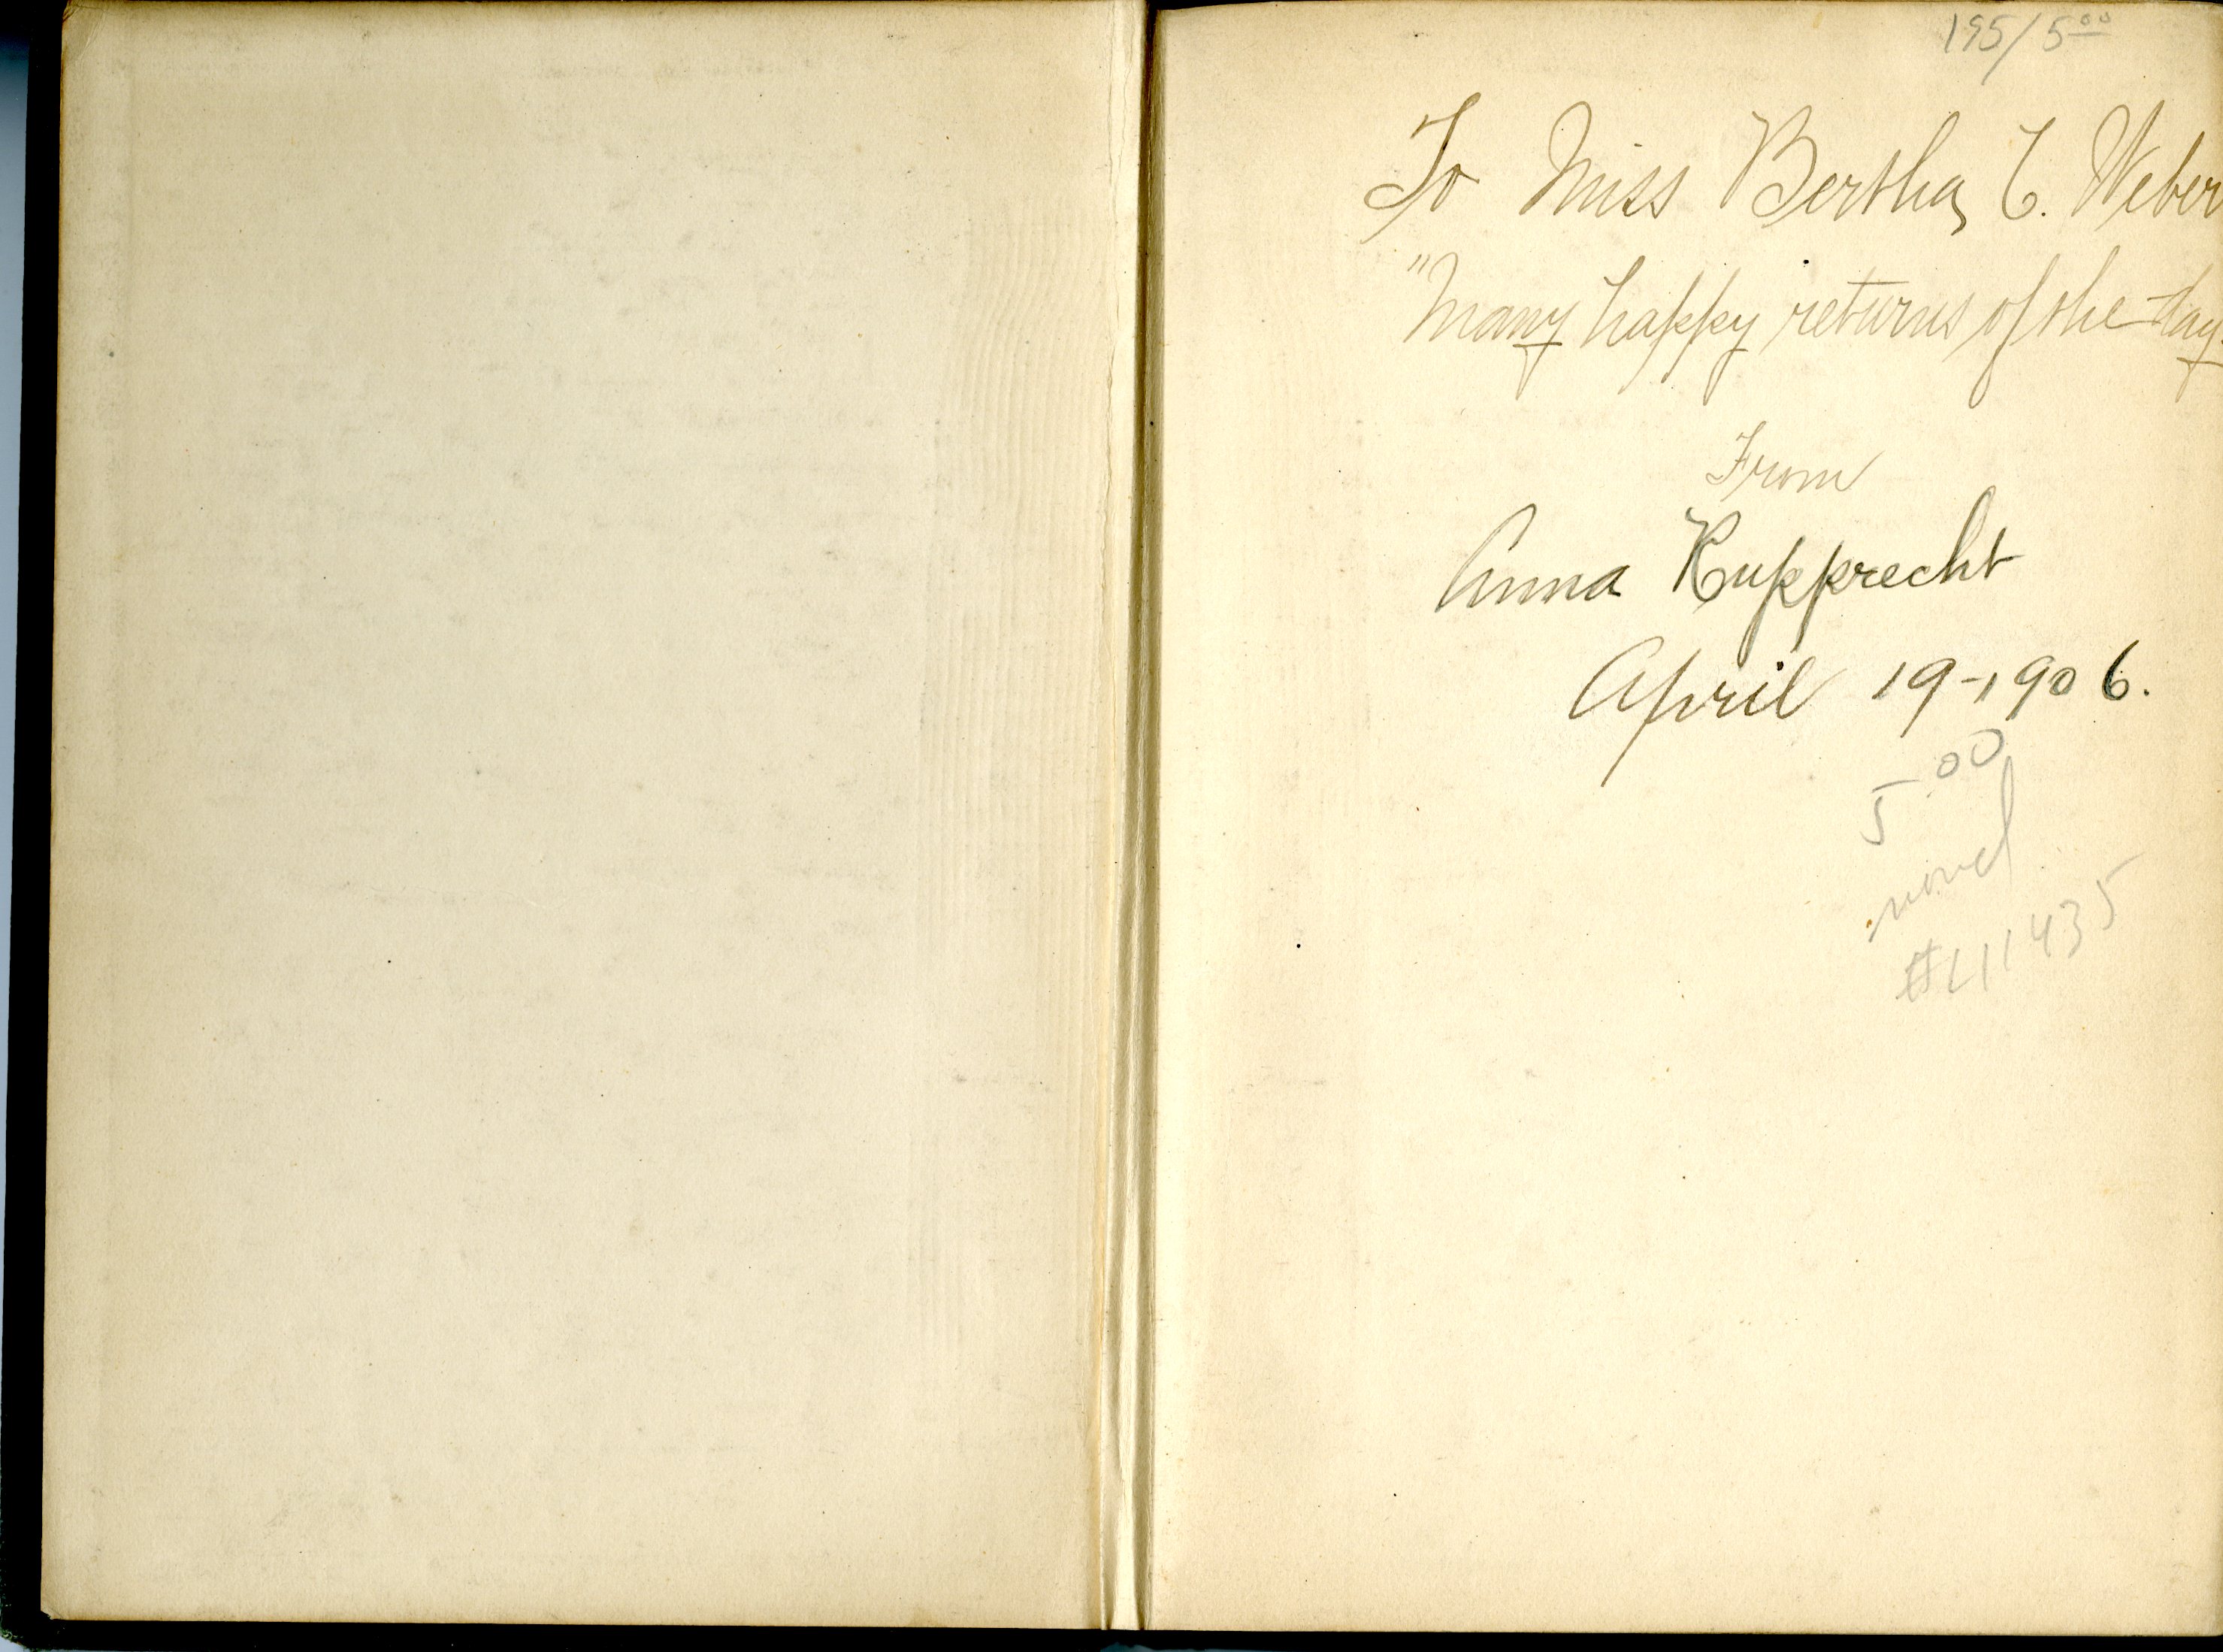 195/5⁰⁰
To Miss Bertha C. Weber
"Many happy returns of the day.
From
Anna Rupprecht
April 19-1906.
5 00
novel
#L11435